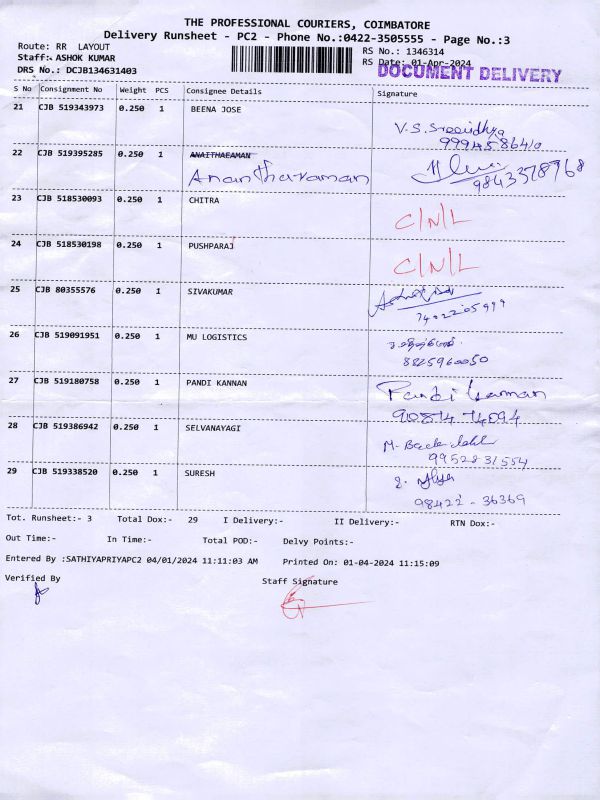 THE PROFESSIONAL COURIERS, COIMBATORE
Delivery Runsheet - PC2 - Phone No.:0422-3505555 - Page No.:3
Route: RR LAYOUT
RS No.: 1346314
Staff:- ASHOK KUMAR
RS Date: 01-Apr-2024
DRS No.: DCJB134631403
DOCUMENT DELIVERY
S No Consignment No Weight PCS Consignee Details Signature
21 CJB 519343973 0.250 1 BEENA JOSE
V.S.Sreevidhya
9994586410
22 CJB 519395285 0.250 1 ANAITHAEAMAN
Anantharaman
9843378768
23 CJB 518530093 0.250 1 CHITRA
C/N/L
24 CJB 518530198 0.250 1 PUSHPARAJ
C/N/L
25 CJB 80355576 0.250 1 SIVAKUMAR
7402205999
26 CJB 519091951 0.250 1 MU LOGISTICS
8825960050
27 CJB 519180758 0.250 1 PANDI KANNAN
Pandi kannan
90874 74094
28 CJB 519386942 0.250 1 SELVANAYAGI
M.
9952831554
29 CJB 519338520 0.250 1 SURESH
98422 - 36369
Tot. Runsheet:- 3 Total Dox:- 29 I Delivery:- II Delivery:- RTN Dox:-
Out Time:- In Time:- Total POD:- Delvy Points:-
Entered By :SATHIYAPRIYAPC2 04/01/2024 11:11:03 AM Printed On: 01-04-2024 11:15:09
Verified By Staff Signature